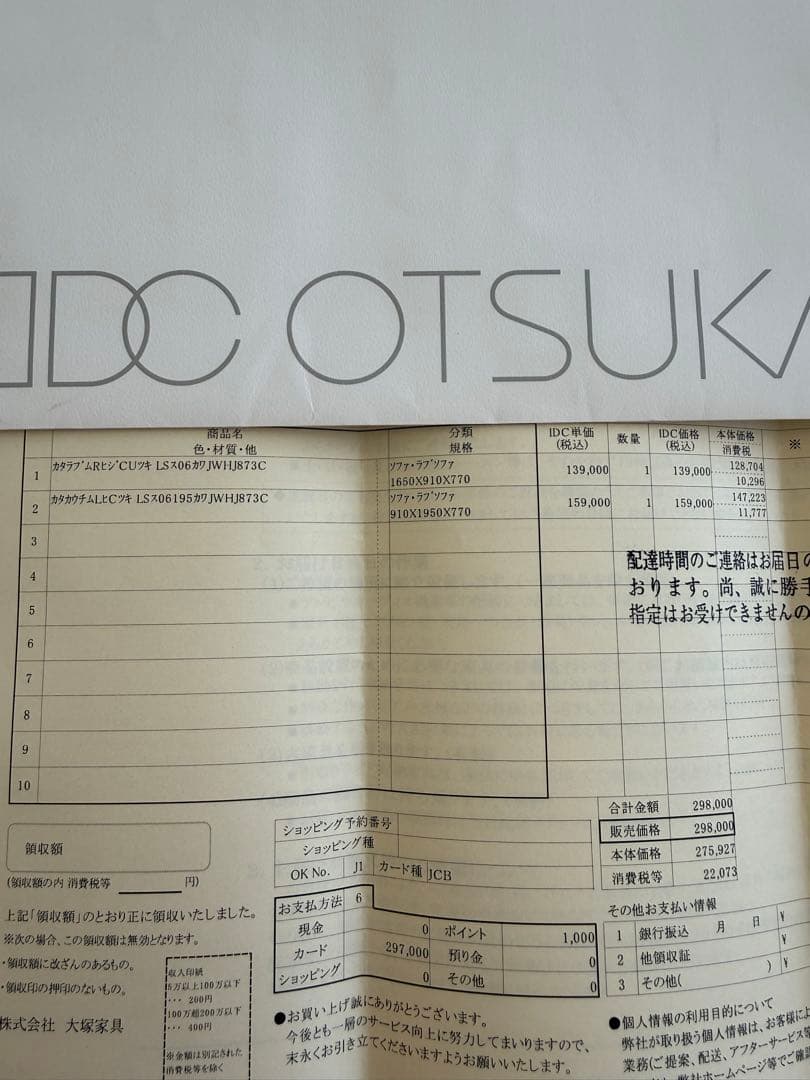 IDC OTSUKA
商品名
色・材質・他
分類
規格
IDC単価
(税込)
数量
IDC価格
(税込)
本体価格
消費税
※
1 カタラブムRヒジCUツキ LSス06カワJWHJ873C ソファ・ラブソファ 1650X910X770 139,000 1 139,000 128,704 10,296
2 カタカウチムLヒCツキ LSス06195カワJWHJ873C ソファ・ラブソファ 910X1950X770 159,000 1 159,000 147,223 11,777
3
4
5
6
7
8
9
10
配達時間のご連絡はお届日の
おります。尚、誠に勝手
指定はお受けできませんの
合計金額 298,000
販売価格 298,000
本体価格 275,927
消費税等 22,073
領収額
(領収額の内 消費税等 円)
上記「領収額」のとおり正に領収いたしました。
※次の場合、この領収額は無効となります。
・領収額に改ざんのあるもの。
・領収印の押印のないもの。
株式会社 大塚家具
収入印紙
5万以上100万以下
… 200円
100万超200万以下
… 400円
※金額は別記された
消費税等を除く
ショッピング予約番号
ショッピング種
OK No. J1 カード種 JCB
お支払方法 6
現金 0 ポイント 1,000
カード 297,000 預り金 0
ショッピング 0 その他 0
●お買い上げ誠にありがとうございます。
今後とも一層のサービス向上に努力してまいりますので、
末永くお引き立てくださいますようお願いいたします。
その他お支払い情報
1 銀行振込 月 日 ¥
2 他領収証 ¥
3 その他( ) ¥
●個人情報の利用目的について
弊社が取り扱う個人情報は、お客様に
業務(ご提案、配送、アフターサービス等
弊社ホームページ等でご確認